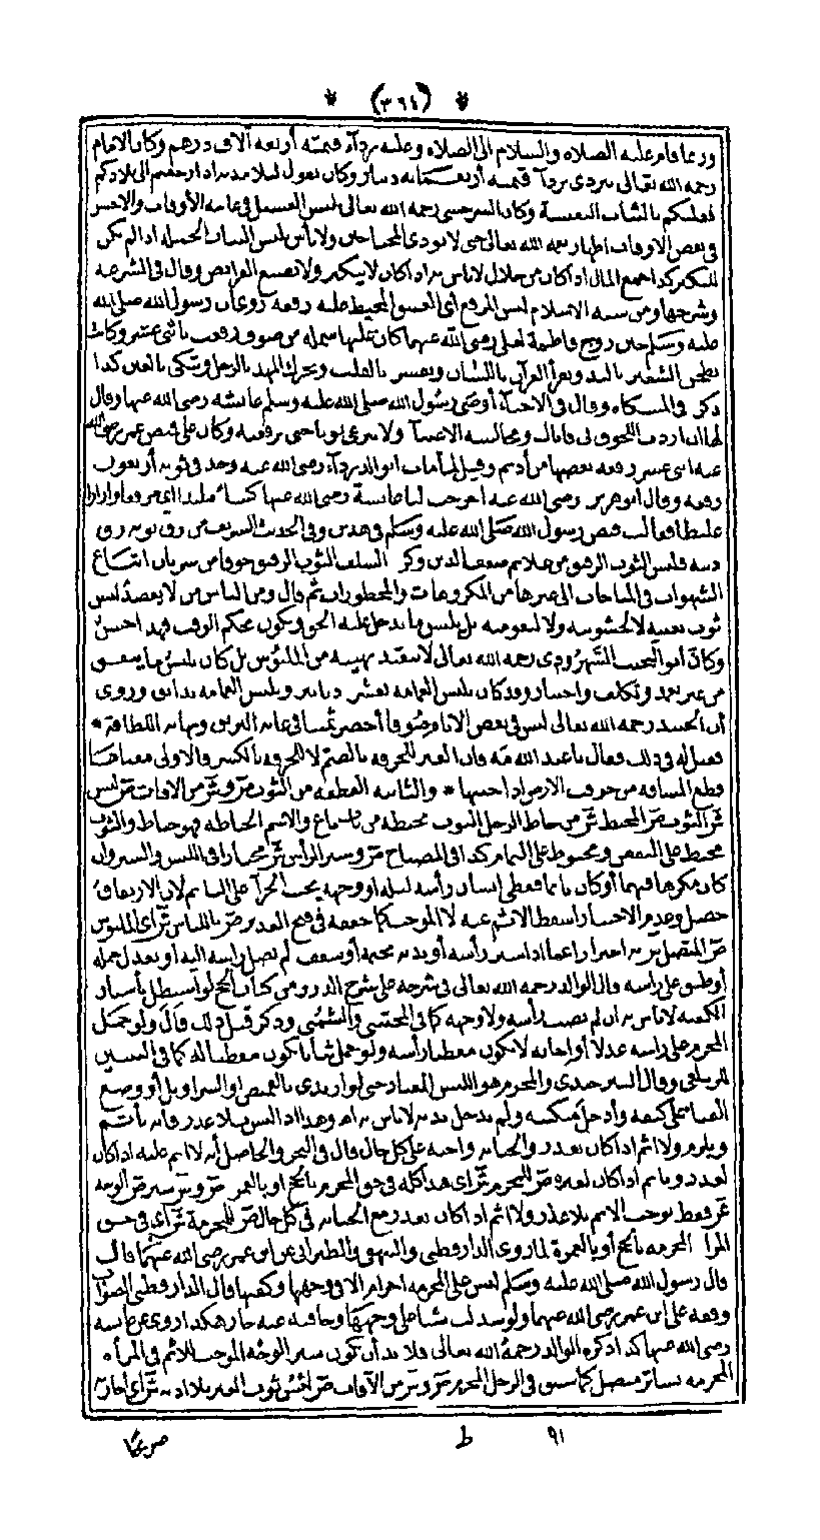 * (٣٦٤) *
وربما قام عليه الصلاة والسلام الى الصلاة وعليه رداء قيمته أربعة آلاف درهم وكان الامام
رحمه الله تعالى يتردى برداء قيمته أربعمائة دينار وكان يقول لتلامذته اذا رجعتم الى بلادكم
فعليكم بالثياب النفيسة وكان السرخسي رحمه الله تعالى يلبس الغسيل في عامة الأوقات والاحسن
في بعض الاوقات اظهارا لنعمة الله تعالى حتى لا يؤذى المحتاجين ولا بأس بلبس الثياب الجميلة اذا لم يكن
للتكبر كذا جمع المال اذا كان من حلال لا بأس به اذا كان لا يتكبر ولا تضيع الفرائض وقال في الشرعة
وشرحها ومن سنة الاسلام لبس المرقع أي المخيط عليه رقعة روى ان رسول الله صلى الله
عليه وسلم حين زوج فاطمة لعلي رضى الله عنهما كان عليها شملة من صوف رقعت باثنى عشر وكانت
تطحن الشعير باليد وتقرأ القرآن باللسان وتفسر بالقلب وتحرك المهد بالرجل وتبكى بالعين كذا
ذكر في المشكاة وقال في الاحياء أوصى رسول الله صلى الله عليه وسلم عائشة رضى الله عنها وقال
لها ان اردت اللحوق بى فاياك ومجالسة الاغنياء ولا تنزعى ثوبا حتى ترقعيه وكان على قميص عمر رضى الله
عنه اثنى عشر رقعة بعضها من أدم وقيل لما مات أبو الدرداء رضى الله عنه وجد في ثوبه أربعون
رقعة وقال أبو هريرة رضى الله عنه أخرجت لنا عائشة رضى الله عنها كساء ملبدا أي مرقعا وازارا
غليظا فقالت قبض رسول الله صلى الله عليه وسلم في هذين وفي الحديث الشريف من رق ثوبه رق
دينه فلبس الثوب الرقيق من علائم ضعف الدين وكره السلف الثوب الرقيق خوفا من سريان اتباع
الشهوات في المباحات الى غيرها من المكروهات والمحظورات ثم قال ومن الناس من لا يقصد لبس
ثوب بعينه لا لخشونته ولا لنعومته بل يلبس ما يدخل عليه الحق ويكون بحكم الوقت فهذا حسن
وكان أبو النجيب السهروردى رحمه الله تعالى لا يتقيد بهيئة من الملبوس بل كان يلبس ما يتفق
من غير تعمد وتكلف واختيار وقد كان يلبس العمامة بعشرة دنانير ويلبس العمامة بدانق وروى
أن الجنيد رحمه الله تعالى لبس في بعض الايام صوفا أحضر ثمينا في غاية التزين ونهاية اللطافة *
فقيل له في ذلك فقال
قطع المسافة من جوف * والثانية
ثر الثوب ضر المخيط ثر من خاط الرجل الثوب يخيطه من باب باع والاسم الخياطة فهو خياط والثوب
مخيط على النقص ومخيوط على التمام كذا في المصباح ضر وستر الرأس ثر مختارا في اللبس والستر وان
كان مكرها فيهما أو كان نائما فغطى انسان رأسه ليلة أو وجهه يجب الجزاء على النائم لان الارتفاق
حصل وعدم الاختيار أسقط الاثم عنه لا الموجب كما حققه في فتح القدير ضر باللباس ثر أي الملبوس
ضر المتصل ثر به احترازا عما اذا ستر رأسه أو بدنه بخيمة أو سقف لم تصل رأسه اليه أو بعدل حمله
أو طبق على رأسه قال الوالد رحمه الله تعالى في شرحه على شرح الدرر ومن كتاب الحج لو استظل بأستار
الكعبة لا بأس به ان لم تصب رأسه ولا وجهه كما في المجتبى والشمنى وذكر قبل ذلك قال ولو حمل
المحرم على رأسه عدلا أو اجانة لا يكون مغطيا رأسه ولو حمل ثيابا يكون مغطيا له كما في التبيين
للزيلعى وقال البرجندى والمحرم هو اللبس المعتاد حتى لو ارتدى بالقميص أو السراويل أو وضع
القباء على كتفه وأدخل منكبيه ولم يدخل يديه لا بأس به اه وهذا اذا لبس بلا عذر فانه يأثم
ويلزم ولا اثم اذا كان بعذر والجناية واجبة على كل حال قال في البحر والحاصل أنه لا اثم عليه اذا كان
لعذر ويأثم اذا كان لغيره ضر للمحرم ثر أي هذا كله في حق المحرم بالحج أو بالعمرة ضر وستر ضر الوجه
ثر فقط يوجب الاثم بلا عذر ولا اثم اذا كان بعذر مع الجناية في كل حال ضر للمحرمة ثر أي في حق
المرأة المحرمة بالحج أو بالعمرة لما روى الدارقطنى والبيهقى والطبرانى عن ابن عمر رضى الله عنهما قال
قال رسول الله صلى الله عليه وسلم ليس على المحرمة احرام الا في وجهها وكفيها قال الدارقطنى الصواب
وقفه على ابن عمر رضى الله عنهما ولو سدلت شيأ على وجهها وجافته عنه جاز هكذا روى عن عائشة
رضى الله عنها كذا ذكره الوالد رحمه الله تعالى فلا بد أن يكون ستر الوجه الموجب للاثم في المرأة
المحرمة بساتر متصل كما سبق في الرجل المحرم ضر و ثر من الآفات ضر لبس ثوب الغير بلا اذنه ثر أي اجازة
٩١ ط